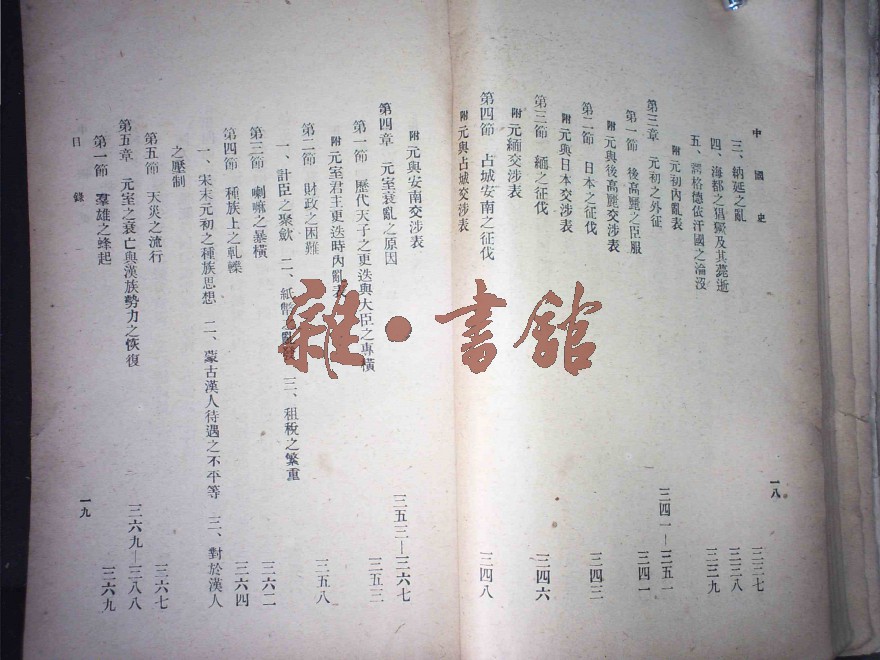 中國史
三、納延之亂 三三七
四、海都之猖獗及其薨逝 三三八
五、諤格德依汗國之淪沒 三三九
附 元初內亂表
第三章 元初之外征 三四一—三五一
第一節 後高麗之臣服 三四一
附 元與後高麗交涉表
第二節 日本之征伐 三四三
附 元與日本交涉表
第三節 緬之征伐 三四六
附 元緬交涉表
第四節 占城安南之征伐 三四八
附 元與占城交涉表
一八
附 元與安南交涉表
第四章 元室衰亂之原因 三五三—三六七
第一節 歷代天子之更迭與大臣之專橫 三五三
附 元室君主更迭時內亂表
第二節 財政之困難 三五八
一、計臣之聚斂 二、紙幣之 三、租稅之繁重
第三節 喇嘛之暴橫 三六二
第四節 種族上之軋轢 三六四
一、宋末元初之種族思想 二、蒙古漢人待遇之不平等 三、對於漢人
之壓制
第五節 天災之流行 三六七
第五章 元室之衰亡與漢族勢力之恢復 三六九—三八八
第一節 羣雄之蜂起 三六九
目錄
一九
雜·書館